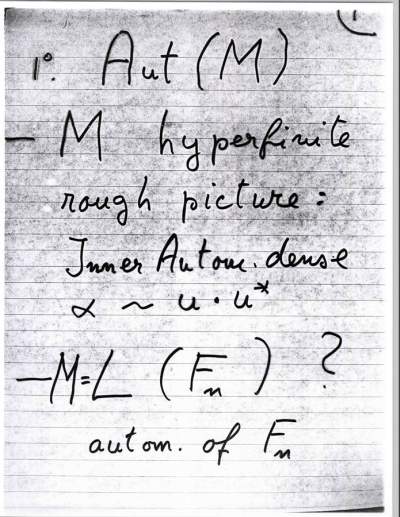 1°. Aut (M)
- M hyperfinite
rough picture:
Inner Autom. dense
α ~ u · u*
- M = L (Fₙ) ?
autom. of Fₙ